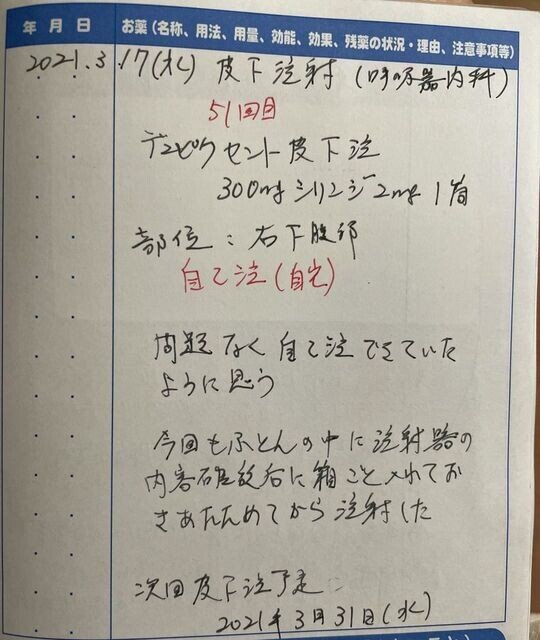 年 月 日
お薬(名称、用法、用量、効能、効果、残薬の状況・理由、注意事項等)
2021.3.17(水) 皮下注射 (呼吸器内科)
51回目
デュピクセント皮下注
300mgシリンジ2mg 1筒
部位:右下腹部
自己注(自宅)
問題なく自己注できていた
ように思う
今回もふとんの中に注射器の
内容確認后に箱ごと入れてお
きあたためてから注射した
次回皮下注予定
2021年3月31日(水)